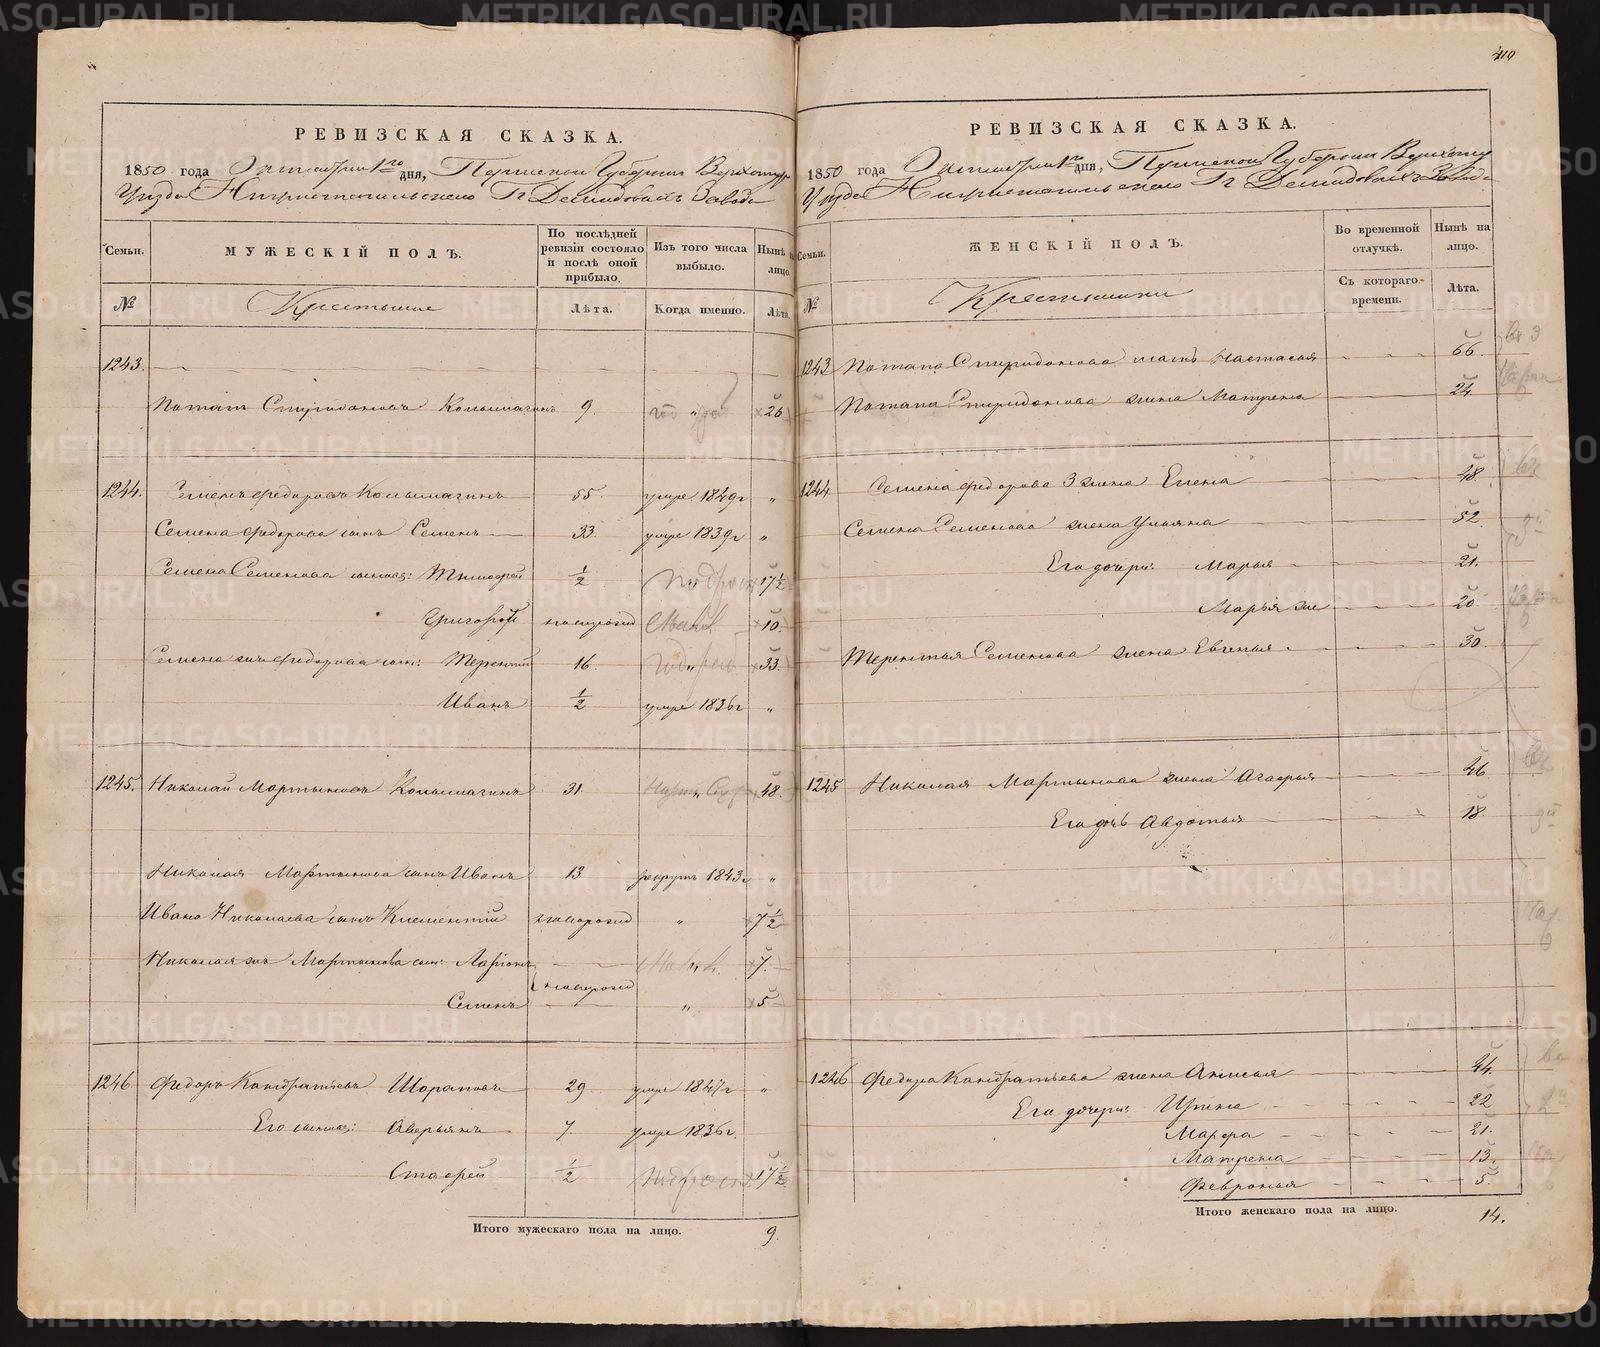 410
РЕВИЗСКАЯ СКАЗКА.
1850 года Октября 1го дня, Пермской Губернии Верхотур
Уезда Нижнетагильского Гг Демидовыхъ Завода
Семьи.
МУЖЕСКІЙ ПОЛЪ.
По послѣдней ревизіи состояло и послѣ оной прибыло.
Изъ того числа выбыло.
Нынѣ на лицо.
№
Крестьяне
Лѣта.
Когда именно.
Лѣта.
1243.
Потапъ Спиридоновъ 9. 26
1244. Семенъ Федоровъ 55. умре 1849г "
Семена Федорова сынъ Семенъ 33 умре 1839г "
Семена Семенова сыновья: Тимофей ½ 17½
Григорій новорожд 10.
Семена же Федорова сын: Терентій 16. 33.
Иванъ ½ умре 1836г "
1245. Николай Мартыновъ 31. 48.
Николая Мартынова сынъ Иванъ 13 рекрутъ 1843г "
Ивана Николаева сынъ Климентій новорожд " 7½
Николая же Мартынова сын: Ларіонъ 7.
новорожд
Семенъ " 5
1246 Федоръ Кондратьевъ Шараповъ 29 умре 1847г "
Его сыновья: Аверьянъ 7. умре 1836г.
Стафей ½ 17½
Итого мужескаго пола на лицо. 9
РЕВИЗСКАЯ СКАЗКА.
1850 года Октября 1го дня, Пермской Губернии Верхотур
Уезда Нижнетагильского Гг Демидовыхъ Завода
Семьи.
ЖЕНСКІЙ ПОЛЪ.
Во временной отлучкѣ.
Нынѣ на лицо.
№
Крестьянки
Съ котораго времени.
Лѣта.
1243 Потапа Спиридонова мать Настасья 66.
Потапа Спиридонова жена Матрена 24.
1244 Семена Федорова 3 жена Елена 48.
Семена Семенова жена Ульяна 52.
Его дочери: Марья 21.
Марья же 20.
Терентья Семенова жена Евгенья 30.
1245 Николая Мартынова жена Агафья 46
Его дочь Авдотья 18.
1246 Федора Кондратьева жена Анисья 44.
Его дочери: Ирина 22
Марфа 21.
Матрена 13.
Февронья 5.
Итого женскаго пола на лицо. 14.
METRIKI.GASO-URAL.RU